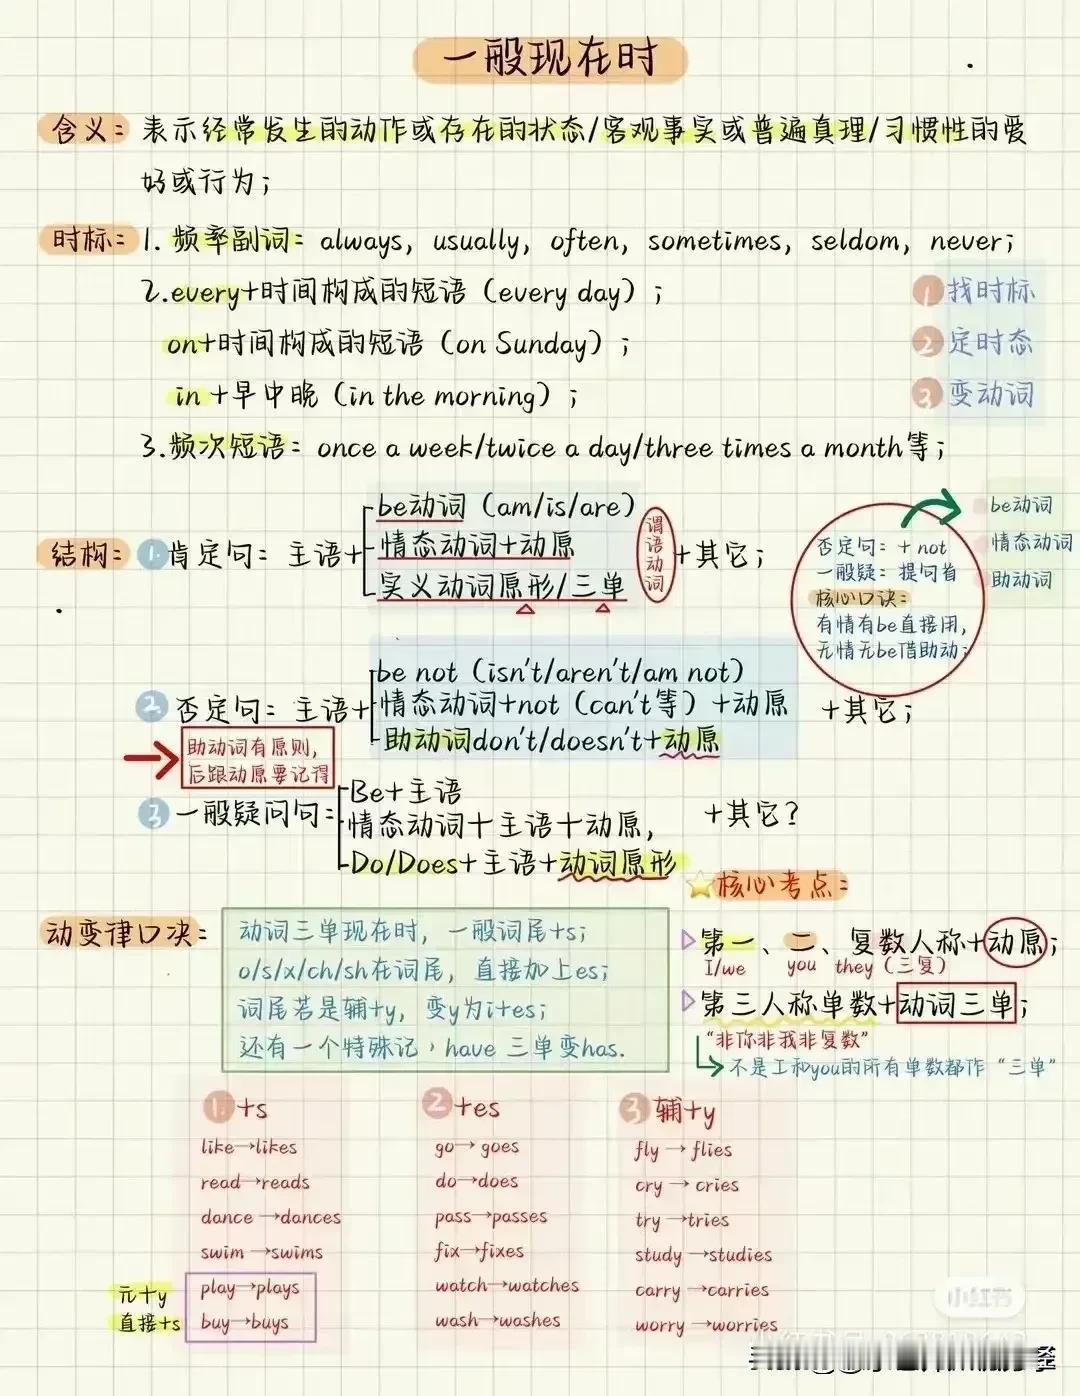 一般现在时
含义：表示经常发生的动作或存在的状态/客观事实或普遍真理/习惯性的爱
好或行为；
时标：1. 频率副词：always, usually, often, sometimes, seldom, never；
2.every+时间构成的短语（every day）；
on+时间构成的短语（on Sunday）；
in +早中晚（in the morning）；
① 找时标
② 定时态
③ 变动词
3.频次短语：once a week/twice a day/three times a month等；
结构：①肯定句：主语+
be动词（am/is/are）
情态动词+动原
实义动词原形/三单
谓语动词
+其它；
否定句：+ not
一般疑：提句首
核心口诀：
有情有be直接用，
无情无be借助动；
be动词
情态动词
助动词
② 否定句：主语+
be not（isn't/aren't/am not）
情态动词+not（can't等）+动原
助动词don't/doesn't+动原
+其它；
助动词有原则，
后跟动原要记得
③ 一般疑问句：
Be+主语
情态动词+主语+动原，
Do/Does+主语+动词原形
+其它？
动变律口决：
动词三单现在时，一般词尾+s；
o/s/x/ch/sh在词尾，直接加上es；
词尾若是辅+y，变y为i+es；
还有一个特殊记，have 三单变has.
核心考点：
第一、二、复数人称+动原；
I/we you they（三复）
第三人称单数+动词三单；
“非你非我非复数”
不是I和you的所有单数都作“三单”
① +s
like→likes
read→reads
dance→dances
swim→swims
play→plays
buy→buys
元+y
直接+s
② +es
go→goes
do→does
pass→passes
fix→fixes
watch→watches
wash→washes
③ 辅+y
fly→flies
cry→cries
try→tries
study→studies
carry→carries
worry→worries
小红书